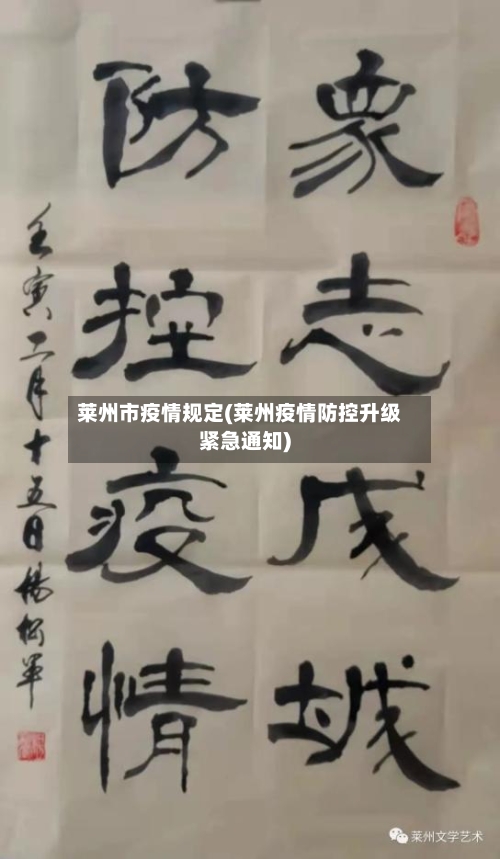 眾志成城
防控疫情
壬寅二月十五日楊松軍
莱州市疫情规定(莱州疫情防控升级
紧急通知)
莱州文学艺术